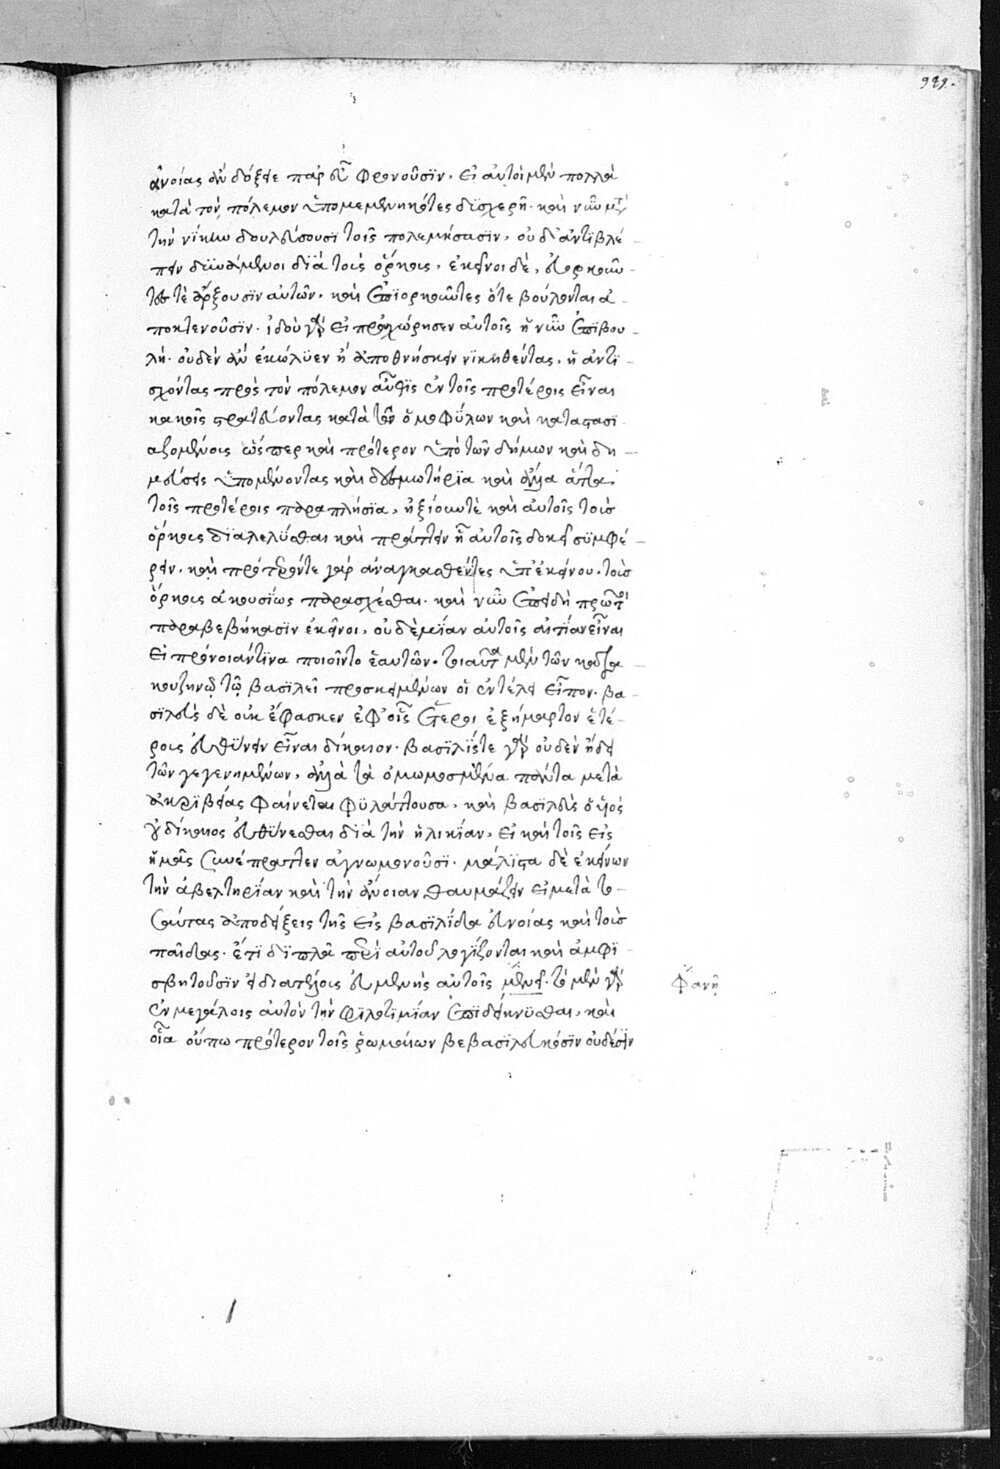 929.
ἀνοίας ἂν δόξειε παρ' εὖ φρονοῦσϊν. εἰ αὐτοὶ μὲν πολλὰ
κατὰ τὸν πόλεμον ὑπομεμενηκότες δϊσχερῆ. καὶ νῦν μετὰ
τὴν νίκην δουλεύσουσϊ τοῖς πολεμήσασϊν, οὐδ' ἀντϊβλέ
πειν δϋνάμενοι δϊὰ τοὺς ὅρκους, ἐκεῖνοι δὲ, εὐορκοῦν
τές τε ἄρξουσϊν αὐτῶν. καὶ ἐπϊορκοῦντες ὅτε βούλονται ἀ
ποκτενοῦσϊν. ἰδοὺ γὰρ εἰ προὐχώρησεν αὐτοῖς ἡ νῦν ἐπϊβου
λή. οὐδὲν ἂν ἐκώλϋεν ἢ ἀποθνήσκειν νϊκηθέντας, ἢ ἀντϊ
σχόντας πρὸς τὸν πόλεμον αὖθϊς ἐν τοῖς προτέροις εἶναι
κακοῖς στρατεύοντας κατὰ τῶν ὁμοφϋλων καὶ καταστασϊ
αζομένοις ὥσπερ καὶ πρότερον ὑπὸ τῶν δήμων καὶ δη
μεύσεις ὑπομένοντας καὶ δεσμωτήρϊα καὶ ἄλλα ἅττα
τοῖς προτέροις παραπλήσϊα, ἠξίουν τὲ καὶ αὐτοῖς τοὺς
ὅρκους δϊαλελύσθαι καὶ πράττειν ἃ αὐτοῖς δοκεῖ σϋμφέ
ρειν. καὶ πρότερόν τε γὰρ ἀναγκασθέντες ὑπ' ἐκείνου. τοὺς
ὅρκους ἀκουσίως παρασχέσθαι. καὶ νῦν ἐπειδὴ πρῶτοι
παραβεβήκασϊν ἐκεῖνοι, οὐδὲμίαν αὐτοῖς αἰτίαν εἶναι
εἰ πρόνοιάν τϊνα ποιοῖντο ἑαυτῶν. τοιαῦτα μὲν τῶν
κουζηνῷ τῷ βασϊλεῖ προσκειμένων οἱ ἐν τέλει εἶπον. βα
σϊλεὺς δὲ οὐκ ἔφασκεν ἐφ' οἷς ἕτεροι ἐξήμαρτον ἑτέ
ροις εὐθϋνειν εἶναι δίκαιον. βασϊλίς τε γὰρ οὐδὲν ᾔδει
τῶν γεγενημένων, ἀλλὰ τὰ ὀμωμοσμένα πάντα μετὰ
ἀκρϊβείας φαίνεται φϋλάττουσα, καὶ βασϊλεὺς ὁ υἱὸς
οὐ δίκαιος εὐθϋνεσθαι δϊὰ τὴν ἡλικίαν, εἰ καὶ τοῖς εἰς
ἡμᾶς συνέπραττεν ἀγνωμονοῦσϊ. μάλϊστα δὲ ἐκείνων
τὴν ἀβελτηρίαν καὶ τὴν ἄνοιαν θαυμάζειν εἰ μετὰ το
σαύτας ἀποδείξεις τῆς εἰς βασϊλίδα εὐνοίας καὶ τοὺς
παῖδας. ἔτϊ δϊπλᾶ περὶ αὐτοῦ λογίζονται καὶ ἀμφϊ
σβητοῦσϊν εἰ διατελοίης εὐμενὴς αὐτοῖς μένει. τὸ μὲν γὰρ
φανῇ
ἐν μεγάλοις αὐτὸν τὴν φϊλοτϊμίαν ἐπϊδείκνυσθαι, καὶ
οἷα οὔπω πρότερον τοῖς ῥωμαίων βεβασϊλευκόσϊν οὐδέσϊν